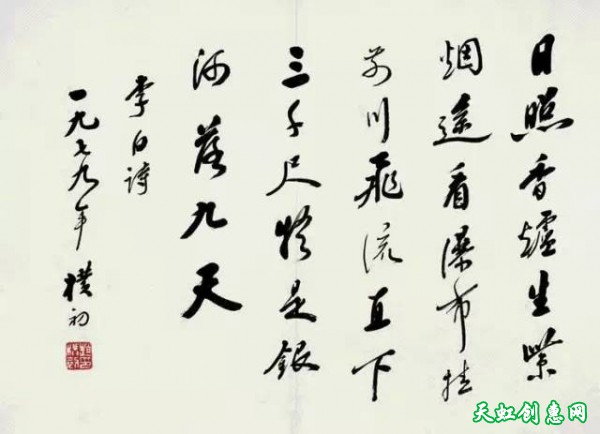 日照香爐生紫
烟遥看瀑布挂
前川飛流直下
三千尺疑是銀
河落九天
李白詩
一九七九年 樸初
天虹创惠网